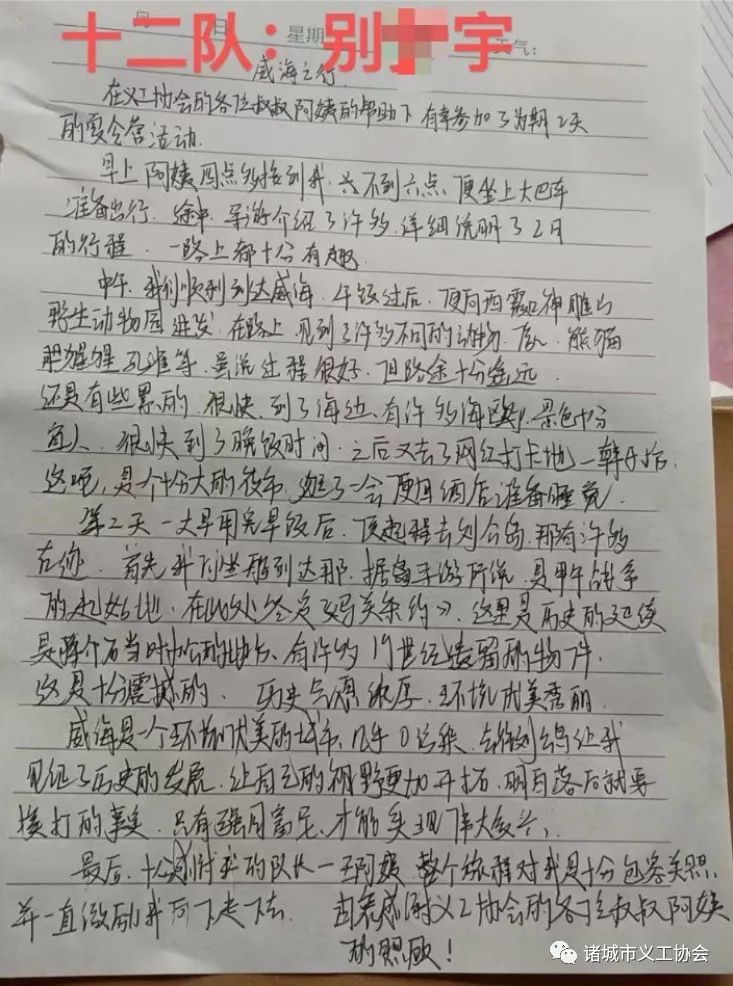 十二队：别 宇
星期 天气：
威海之行
在义工协会的各位叔叔阿姨的帮助下 有幸参加了为期2天
的夏令营活动.
早上 阿姨四点多接到我. 六点 便坐上大巴车
准备出行. 途中. 导游介绍了许多. 详细说明了2日
的行程. 一路上都十分有趣.
中午. 我们顺利到达威海. 午饭过后. 便向西霞口神雕山
野生动物园进发. 在路上. 见到了许多不同的动物. 熊猫
黑猩猩 等. 虽说过程很好. 但路途十分遥远
还是有些累的. 很快. 到了海边、有许多海鸥, 景色十分
宜人. 很快到了晚饭时间. 之后又去了网红打卡地—韩乐坊.
这吧, 是个十分大的夜市, 逛了一会便回酒店准备睡觉.
第2天一大早用完早饭后. 便起程去刘公岛. 那有许多
古迹. 首先我们坐船到达那. 据导游所说, 是甲午战争
的起始地. 在此处签 马关条约》. 这里是历史的延续
是 当时办公的地方、有许多19世纪遗留的物件.
这是十分震撼的、历史气息浓厚. 环境优美秀丽.
威海是一个环境优美的城市、几乎0污染. 去 让我
见证了历史的发展. 让自己的视野更加开拓. 明白落后就要
挨打的事实. 只有强国富民. 才能实现伟大复兴,
最后. 十分感谢我的队长—王阿姨. 整个旅程对我是十分包容关照.
并一直激励我向下走下去. 由衷感谢义工协会的各位叔叔阿姨
的照顾！
诸城市义工协会